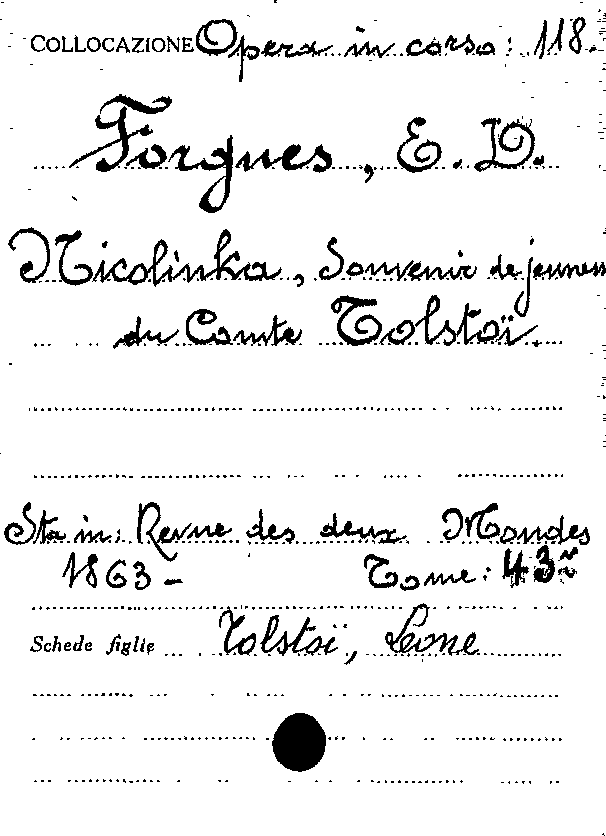 COLLOCAZIONE Opera in corso: 118.
Forgues, E. D.
Nicolinka, Souvenir de jeuness
du Comte Tolstoï.
Sta in: Revue des deux Mondes
1863- Tome: 43º
Schede figlie Tolstoï, Leone